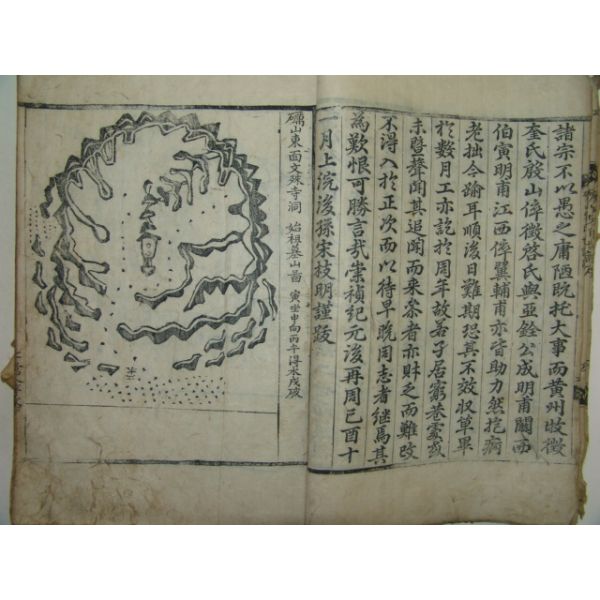 諸宗不以愚之庸陋旣托大事而黃州收徵
奎氏殷山倅徵啓氏與亞銓公成明甫關西
伯寅明甫江西倅翼輔甫亦皆助力然抱病
老拙今踰耳順後日難期恐其不效收草畢
於數月工亦訖於周年故若子居窮巷處或
未暨聲聞其追聞而來參者亦財乏而難改
不得入於正次而以待早晩周志者繼焉其
爲歎恨可勝言哉崇禎紀元後再周己酉十
一月上浣後孫宋枝明謹跋
礪山東面文殊寺洞
始祖墓山啚
寅坐申向丙午得水戌破